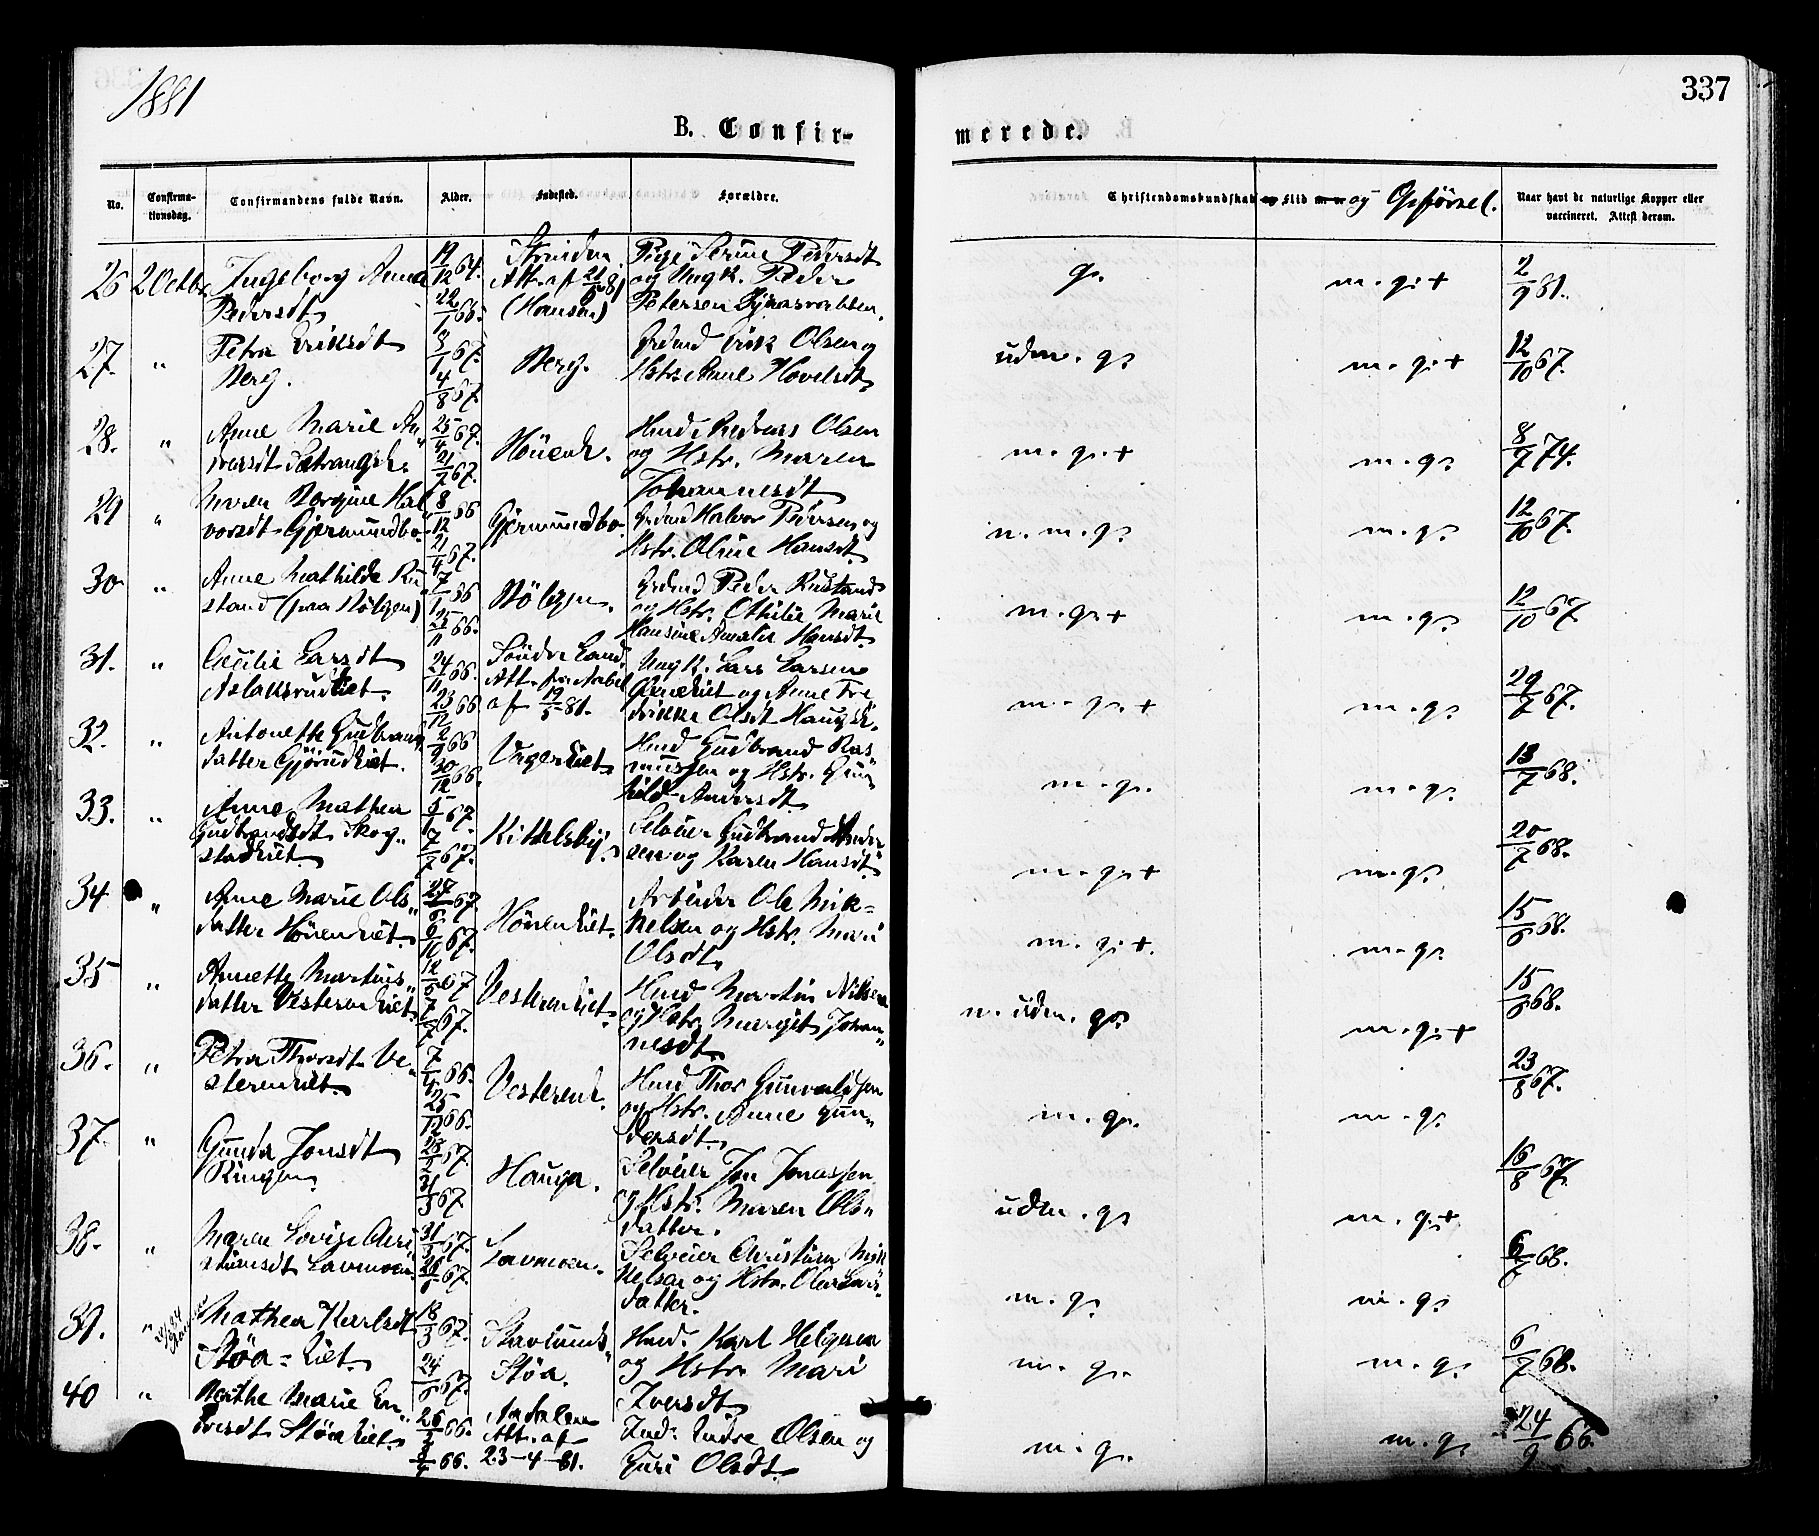 1881
337
B. Confir-
merede.
No.
Confirma-
tionsdag.
Confirmandens fulde Navn.
Alder.
Fødested.
Forældre.
Christendomskundskab
Flid og Opførsel.
Naar havt de naturlige Kopper eller
vaccineret. Attest derom.
26 2 Octbr. Ingeborg Anna
Pedersdt.
Att. af
(Hansen)
Pige Serine Pedersdt
og Ungk. Peder
Petersen
g.
m. g. +
2/9 81.
27. " Petra Eriksdt
Berg.
3/1 67.
4/8 67.
Berg.
Grdmd Erik Olsen og
Hstr.
udm. g.
m. g. +
12/10 67.
28. " Anne Marie An
25/4 67.
21/7 67.
Hönenk.
Hmd. Andreas Olsen
og Hstr. Maren
Johannesdt
m. g. +
m. g.
8/7 74.
29 " Maren Hal
vorsdt Gjermundbo
8/12 66
21/4 67.
Gjermundbo.
Grdmd Halvor Pedersen og
Hstr. Oline Hansdt
n. m. g.
m. g.
12/10 67.
30 " Anne Mathilde Ru
stand (paa Stölgen)
25/11 66.
Stölgen.
Grdmd Peder Rustand
og Hstr. Othilie Marie
Hansine Amalie Hansdt.
m. g. +
m. g.
12/10 67
31. " Cecilie Larsdt
Aslaksrudeiet.
24/11 66.
23/12 66
Söndre Land.
Att.
af 19/5 81.
Ungk. Lars Larsen
og Anne Fre
drikke Olsdt
m. g. +
m. g.
29/7 67.
32. " Antonette Gudbrands
datter Gjörudeiet.
30/12 66.
Hmd Gudbrand Ras
mussen og Hstr. Gun
hild Andersdt
m. g.
m. g.
13/7 68.
33. " Anne Mathea
Gudbrandsdt Skog
stadeiet.
5/1 67.
7/7 67.
Kittelsby.
Selveier Gudbrand Ander
sen og Karen Hansdt
m. g. +
m. g.
20/7 68.
34 " Anne Marie Ols
datter Höneneiet.
6/10 67.
Höneneiet.
Arbeider Ole Mik=
kelsen og Hstr. Mari
Olsdt.
m. g. +.
m. g.
15/6 68.
35 " Annette Martins
datter Vesterneiet
7/7 67.
Vesterneiet.
Hmd Martin Nilsen
og Hstr. Margit Johan
nesdt.
n. udm. g.
m. g. +
15/6 68.
36. " Petra Thorsdt Ve-
sterneiet.
25/12 66.
Vesternk.
Hmd Thor Gunvaldsen
og Hstr. Anne Gun
dersdt.
m. g.
m. g.
23/8 67.
37. " Gunda Jonsdt
Ringen.
28/2 67.
31/3 67.
Hauga.
Selveier Jon Jonassen
og Hstr. Maren Ols
datter.
udm. g.
m. g. +
16/8 67.
38. " Maren Lovise Chri
stiansdt Lavmoen.
31/3 67.
Lavmoen.
Selveier Christian Mik
kelsen og Hstr.
datter.
m. g.
m. g.
6/7 68.
39. " Mathea Karlsdt
Stöa=eiet.
18/3 67.
24/6 67.
Stavlunds
Stöa.
Hmd. Karl Helgesen
og Hstr. Mari
Iversdt
m. g.
m. g.
6/7 68.
40 " Berthe Marie En
dresdt Stöaeiet.
66.
66.
Aadalen
Att. af
23-4-81.
Ind. Endre Olsen og
Guri Olsdt.
m. g.
m. g.
24/9 66.